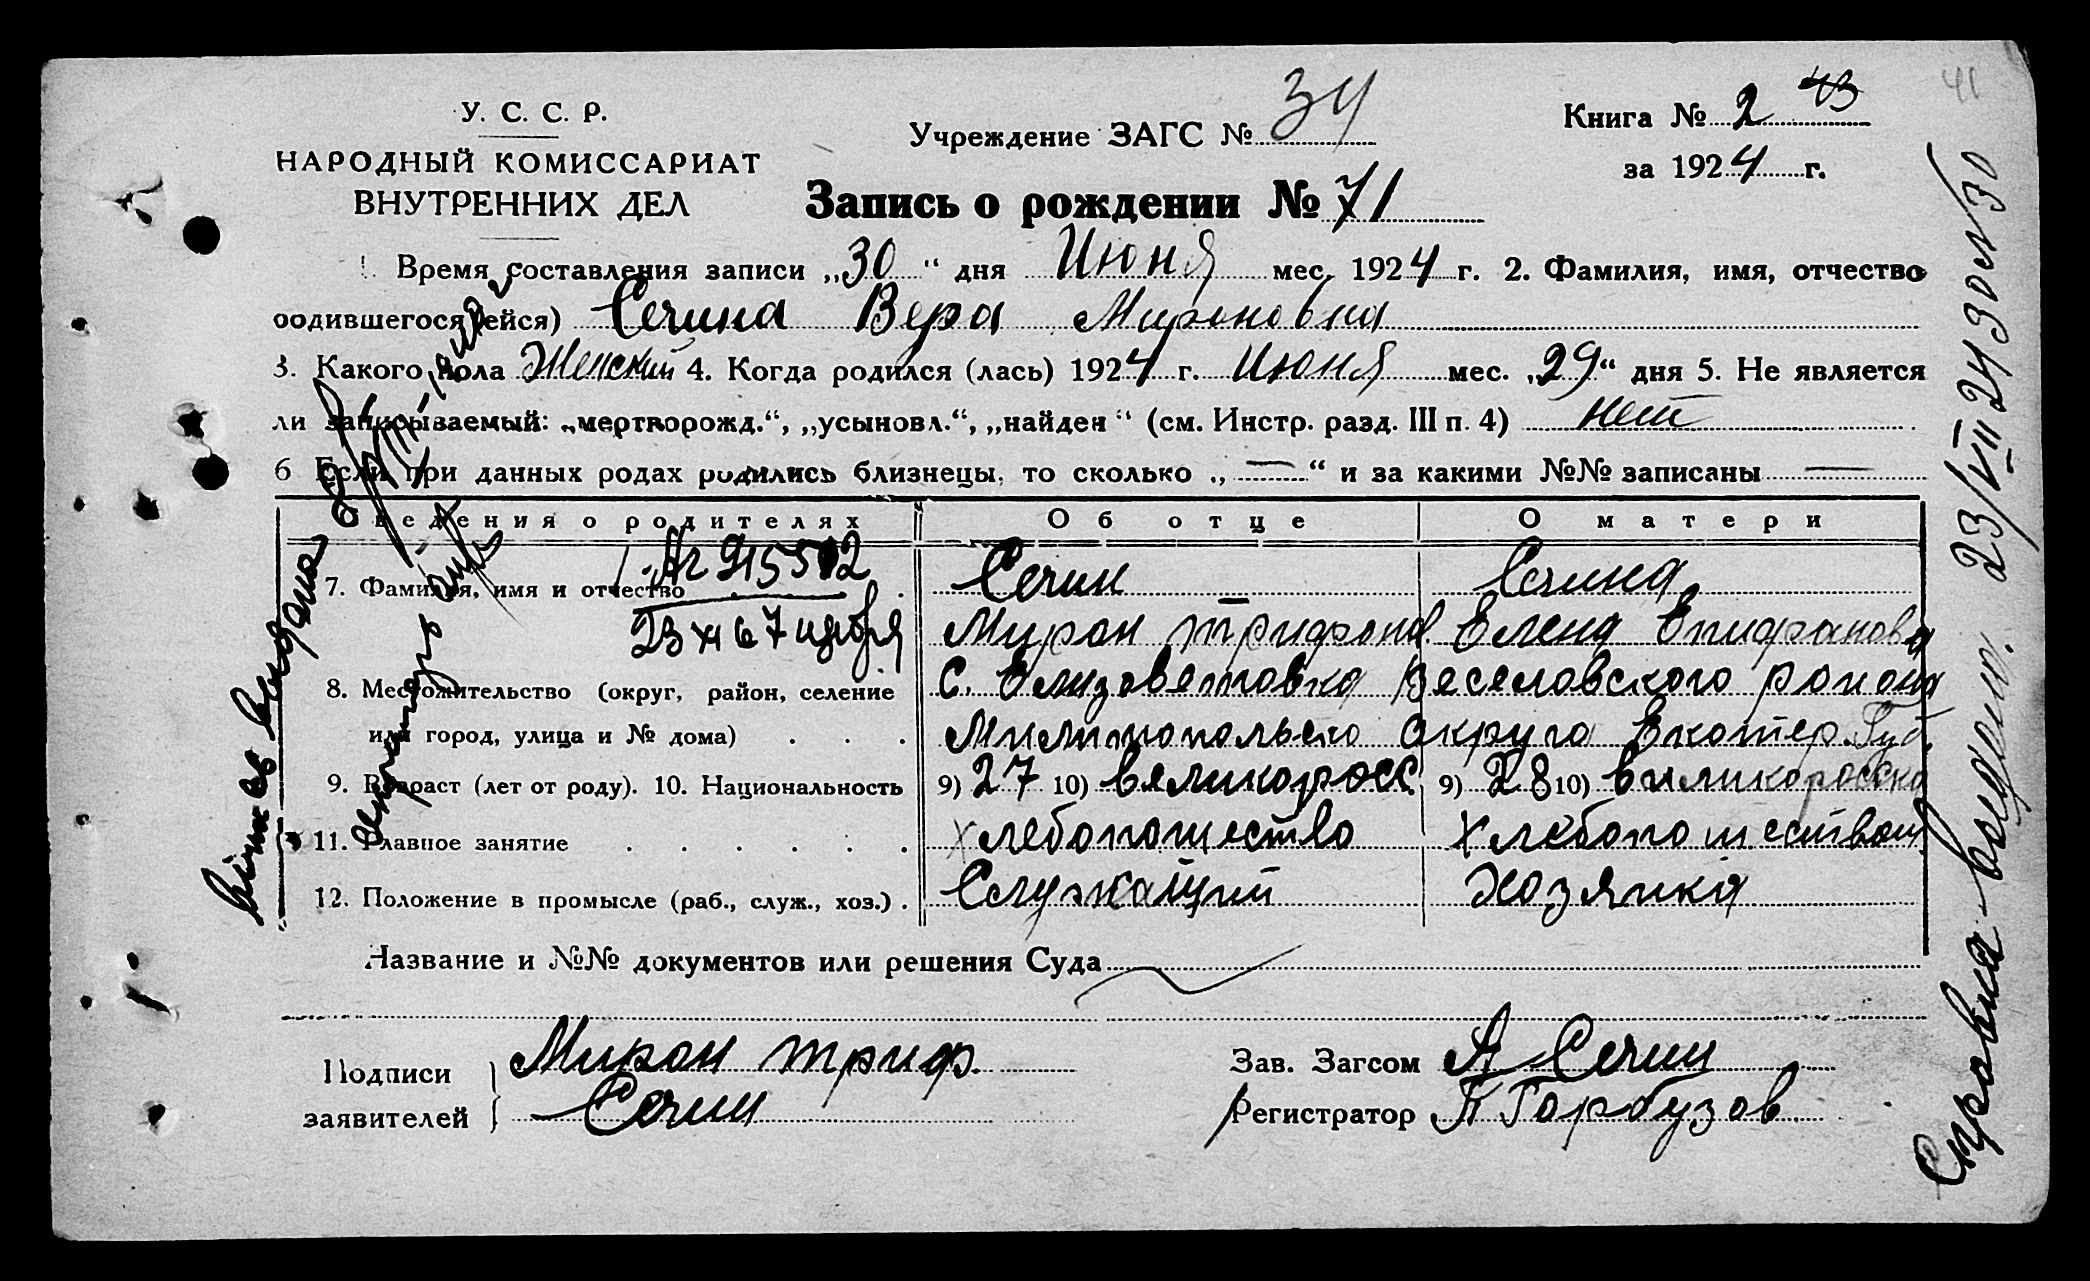 41
У. С. С. Р.
НАРОДНЫЙ КОМИССАРИАТ
ВНУТРЕННИХ ДЕЛ
Учреждение ЗАГС № 34
Книга № 2 43
за 1924 г.
Запись о рождении № 71
Время составления записи „30“ дня Июня мес. 1924 г. 2. Фамилия, имя, отчество
родившегося (ейся) Сечина Вера Мироновна
3. Какого пола Женский 4. Когда родился (лась) 1924 г. Июня мес. „29“ дня 5. Не является
ли записываемый: „мертворожд.“, „усыновл.“, „найден“ (см. Инстр. разд. III п. 4) нет
6 Если при данных родах родились близнецы, то сколько „—“ и за какими №№ записаны —
Сведения о родителях Об отце О матери
7. Фамилия, имя и отчество Сечин Сечина
Мирон Трифонов. Елена Епифанова
8. Местожительство (округ, район, селение с. Елизаветовка Веселовского района
или город, улица и № дома) Милитопольско округа Екатер. Губ.
9. Возраст (лет от роду). 10. Национальность 9) 27 10) великоросс 9) 28 10) виликоросска
11. Главное занятие хлебопашество хлебопашеством
12. Положение в промысле (раб., служ., хоз.) Служащий Хозяйка
Название и №№ документов или решения Суда
Подписи заявителей Мирон Триф.
Сечин
Зав. Загсом А Сечин
Регистратор П Горбузов
Справка выдана. 23/VII 24 30 № 30